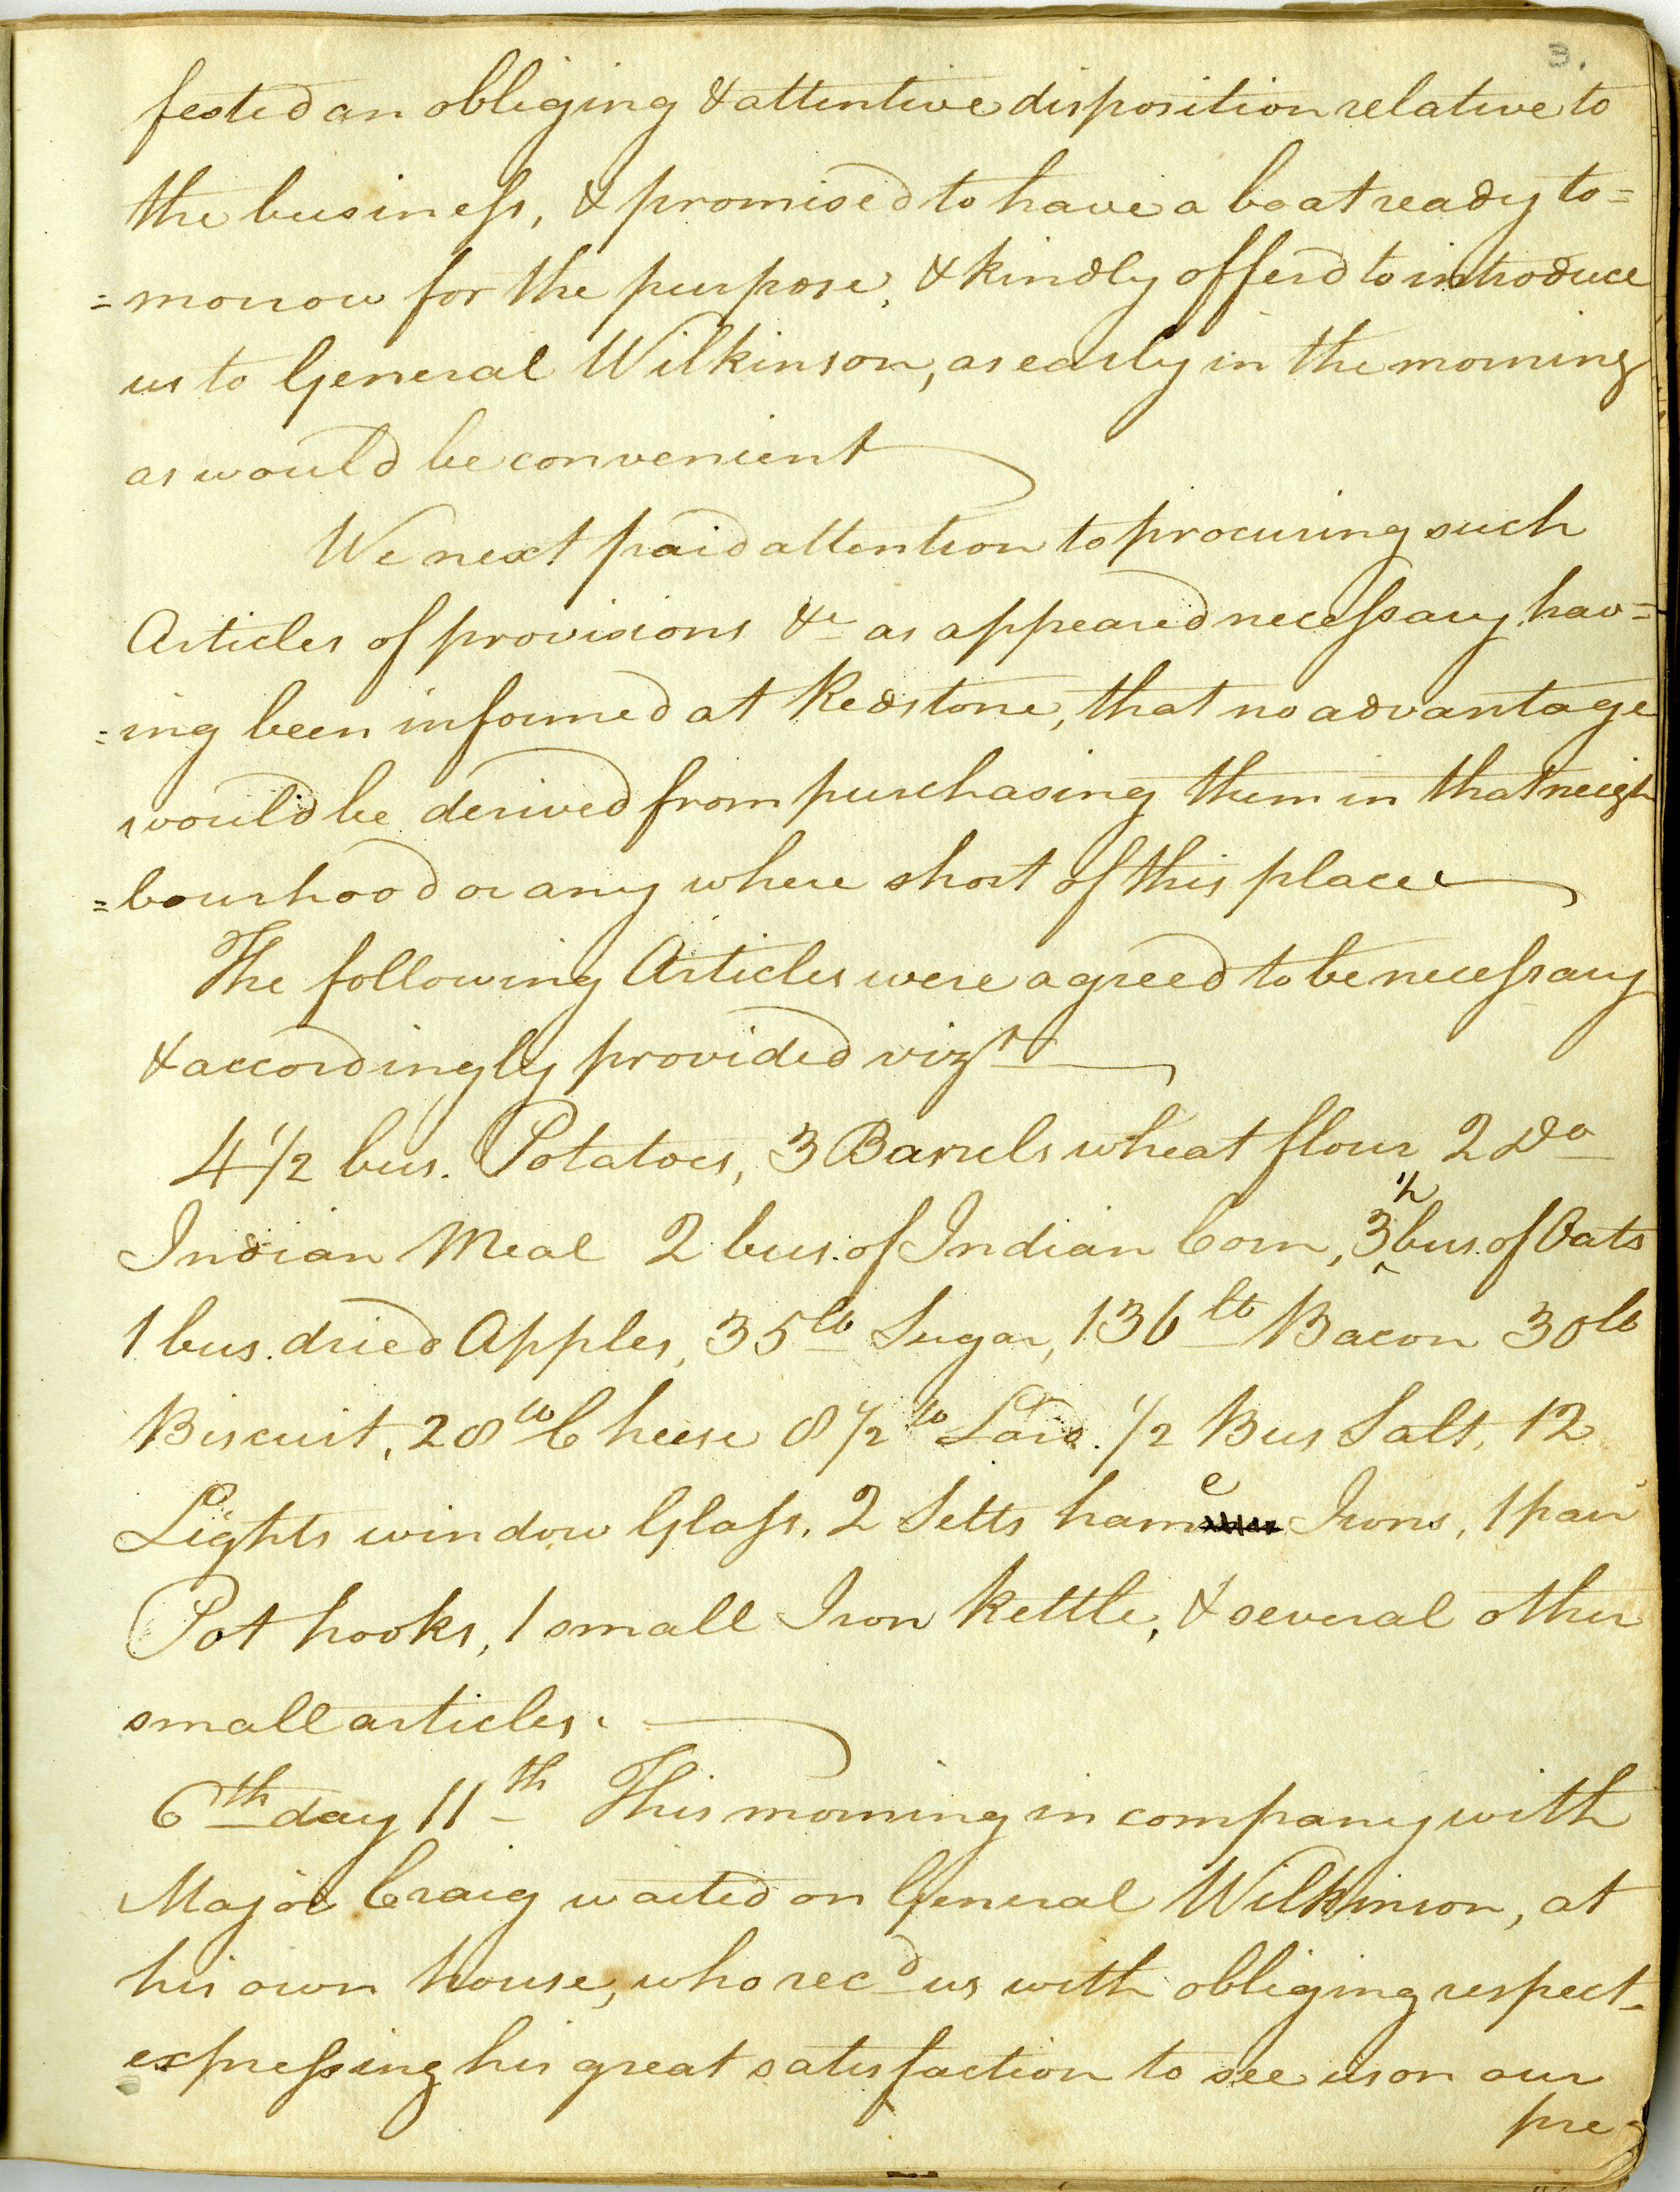 3.
fested an obliging & attentive disposition relative to
the business, & promised to have a boat ready to=
=morrow for the purpose, & kindly offerd to introduce
us to General Wilkinson, as early in the morning
as would be convenient
We next paid attention to procuring such
Articles of provisions &c as appeared necessary, hav=
=ing been informed at Redstone, that no advantage
would be derived from purchasing them in that neigh
=bourhood or any where short of this place
The following Articles were agreed to be necessary
& accordingly provided vizt
4 1/2 bus. Potatoes, 3 Barrels wheat flour 2 Do
Indian Meal 2 bus. of Indian Corn, 3 1/2 bus. of Oats
1 bus. dried Apples, 35 lb Sugar, 136 lb Bacon 30 lb
Biscuit, 28 lb Cheese 8 1/2 lb Lard. 1/2 Bus Salt, 12
Lights window Glass, 2 Setts hame Irons, 1 pair
Pot hooks, 1 small Iron Kettle, & several other
small articles.
6th day 11th This morning in company with
Major Craig waited on General Wilkinson, at
his own house, who recd us with obliging respect-
expressing his great satisfaction to see us on our
pre